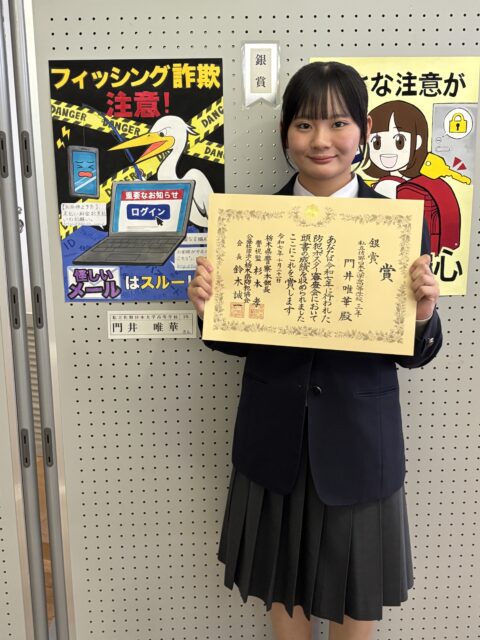 フィッシング詐欺
注意!
DANGER
DANGER
DANGER
DANGER
重要なお知らせ
ログイン
怪しい
メールはスルー
門井 唯華
銀賞
な注意が
心
銀賞
私立佐野日本大学高等学校 三年
門井唯華 殿
あなたは令和七年に行われた
防犯ポスター審査会において
頭書の成績を収められました
ここにこれを賞します
栃木県警察本部長
警視監 杉本 孝
公益社団法人栃木県防犯協会
会長 鈴木 誠一